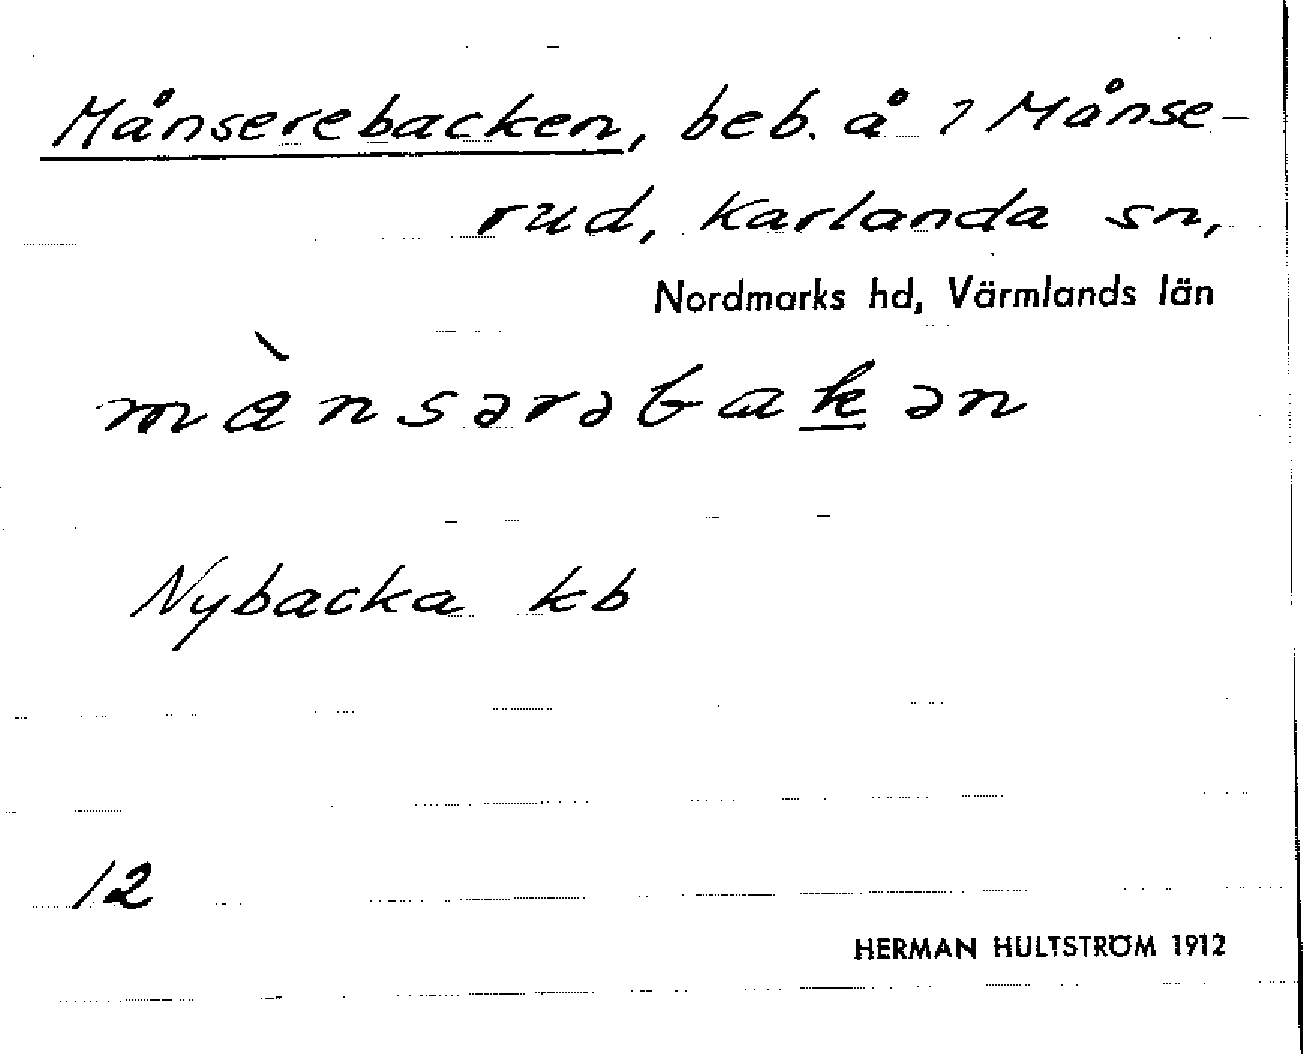 Månserebacken, beb. å 1 Månse-
rud, Karlanda sn,
Nordmarks hd, Värmlands län
mànsərəbakən
Nybacka kb
12
HERMAN HULTSTRÖM 1912